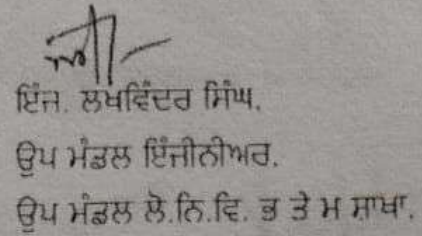 ਇੰਜ. ਲਖਵਿੰਦਰ ਸਿੰਘ.
ਉਪ ਮੰਡਲ ਇੰਜੀਨੀਅਰ.
ਉਪ ਮੰਡਲ ਲੋ.ਨਿ.ਵਿ. ਭ ਤੇ ਮ ਸ਼ਾਖਾ.